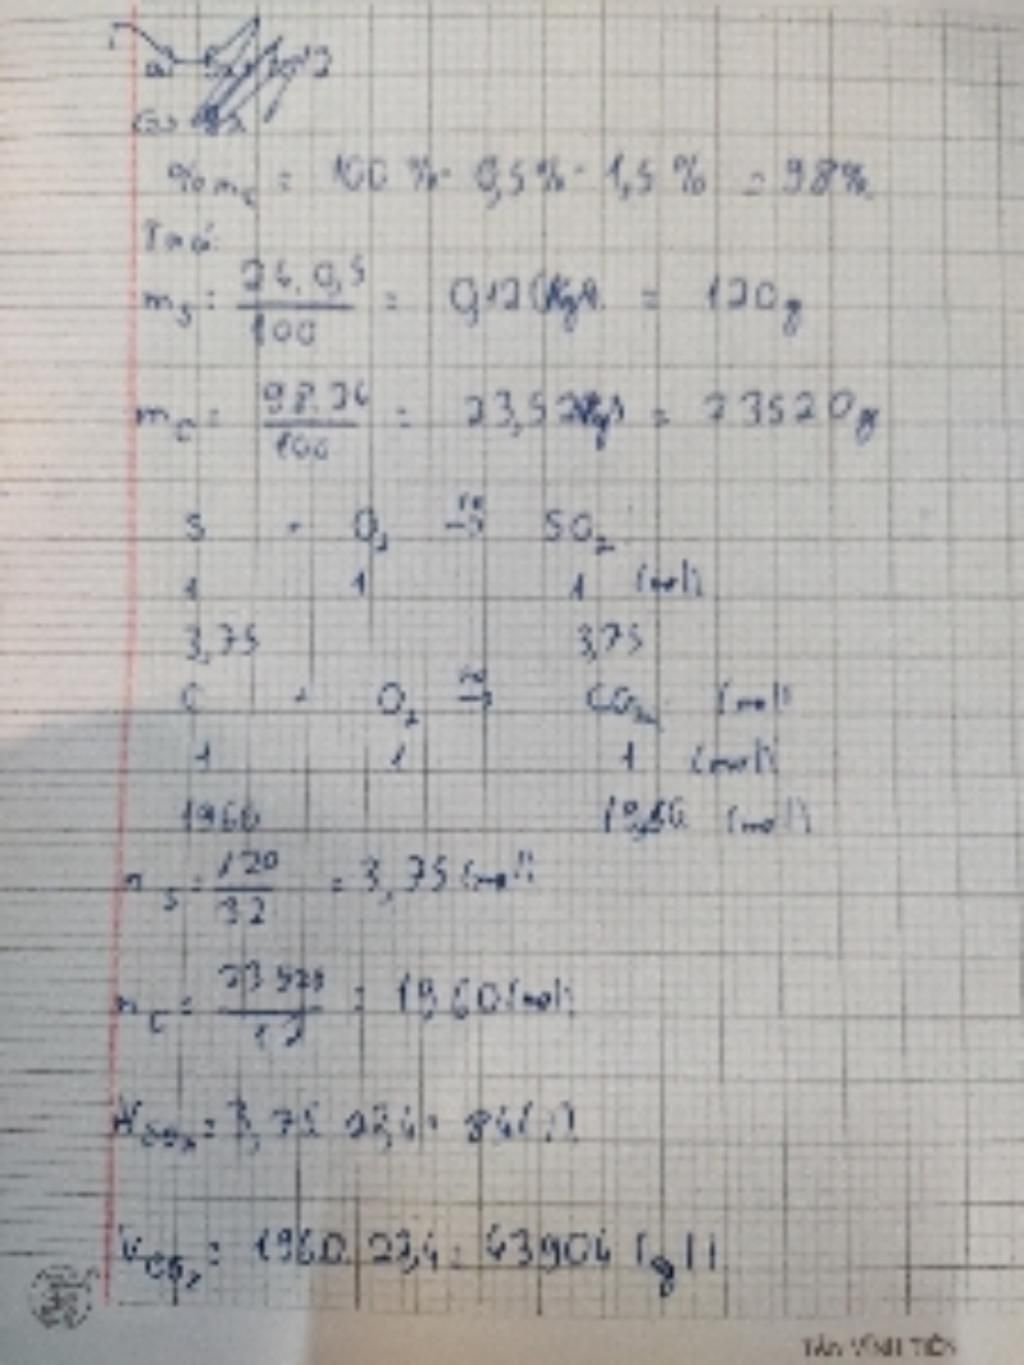 %m_C = 100% - 0,5% - 1,5% = 98%
Ta có:
m_S = \frac{24.0,5}{100} = 0,12(kg) = 120g
m_C = \frac{98.24}{100} = 23,52(kg) = 23520g
S + O_2 \xrightarrow{t^o} SO_2
1 1 1 (mol)
3,75 3,75
C + O_2 \xrightarrow{t^o} CO_2 (mol)
1 1 1 (mol)
1960 (mol)
n_S = \frac{120}{32} = 3,75 (mol)
n_C = \frac{23520}{12} = 1960 (mol)
= 3,75.22,4 = 84(l)
V_{CO_2} = 1960.22,4 = 43904
TÂN VĨNH TIẾN